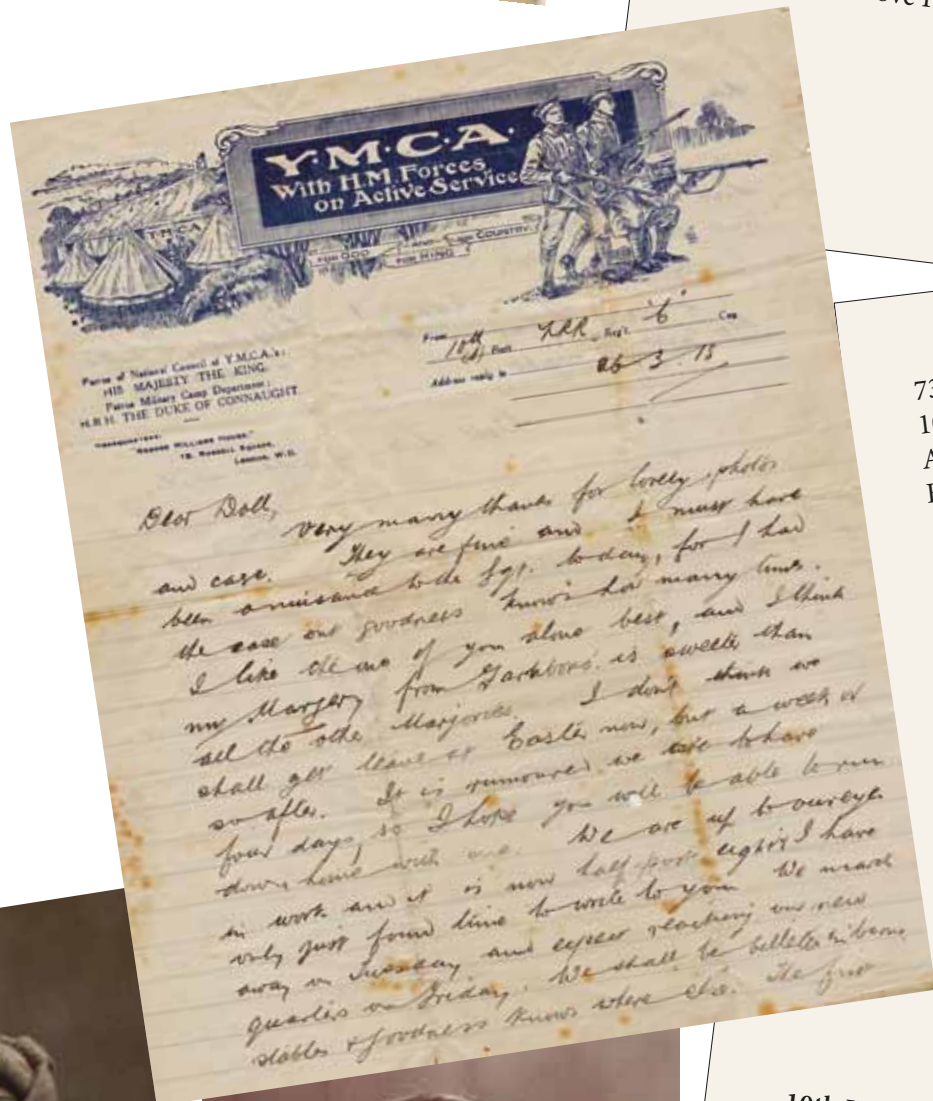 Y·M·C·A·
With H.M. Forces
on Active Service
Y.M.C.A
FOR GOD AND FOR COUNTRY
FOR KING
Patron of National Council of Y.M.C.A.'s:
HIS MAJESTY THE KING.
Patron Military Camp Department:
H.R.H. THE DUKE OF CONNAUGHT.
HEADQUARTERS:
"GEORGE WILLIAMS HOUSE,"
13, RUSSELL SQUARE,
LONDON, W.C.
From
10th Batt. KRR Reg't. 'C' Coy
Address reply to 26 3 15
Dear Doll,
Very many thanks for lovely photos
and case. They are fine and I must have
been a nuisance to the today, for I had
the case out goodness knows how many times.
I like the one of you alone best, and I think
my Margery from is sweeter than
all the other Marjories. I don't think we
shall get leave at Easter now, but a week or
so after. It is rumoured we are to have
four days, so I hope you will be able to run
down home with me. We are up to our eyes
in work and it is now half-past eight & I have
only just found time to write to you. We march
away on Tuesday and expect reaching our new
quarters on Friday. We shall be billeted in barns,
stables & goodness knows where else. The
73
10
A
10th